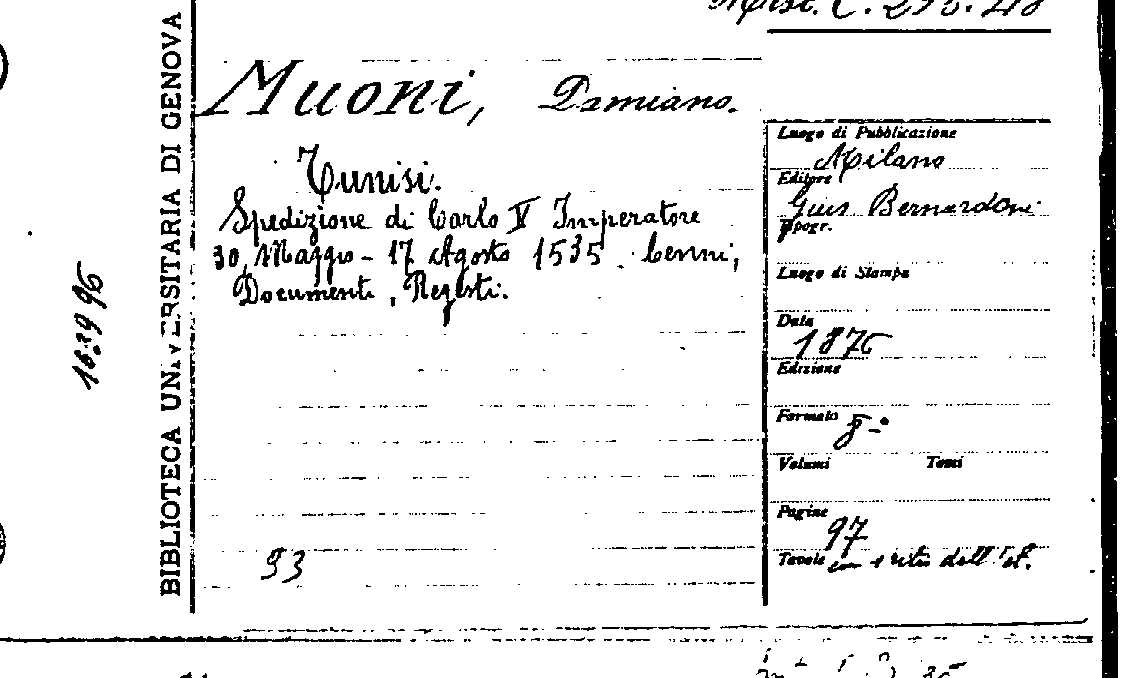 BIBLIOTECA UNIVERSITARIA DI GENOVA
Misc. C. 
Muoni, Damiano.
Tunisi.
Spedizione di Carlo V Imperatore
30 Maggio - 17 Agosto 1535. Cenni,
Documenti, Regesti.
93
Luogo di Pubblicazione
Milano
Editore
Gius Bernardoni
Tipogr.
Luogo di Stampa
Data
1876
Edizione
Formato
8-°
Volumi Tomi
Pagine
97
Tavole con 1